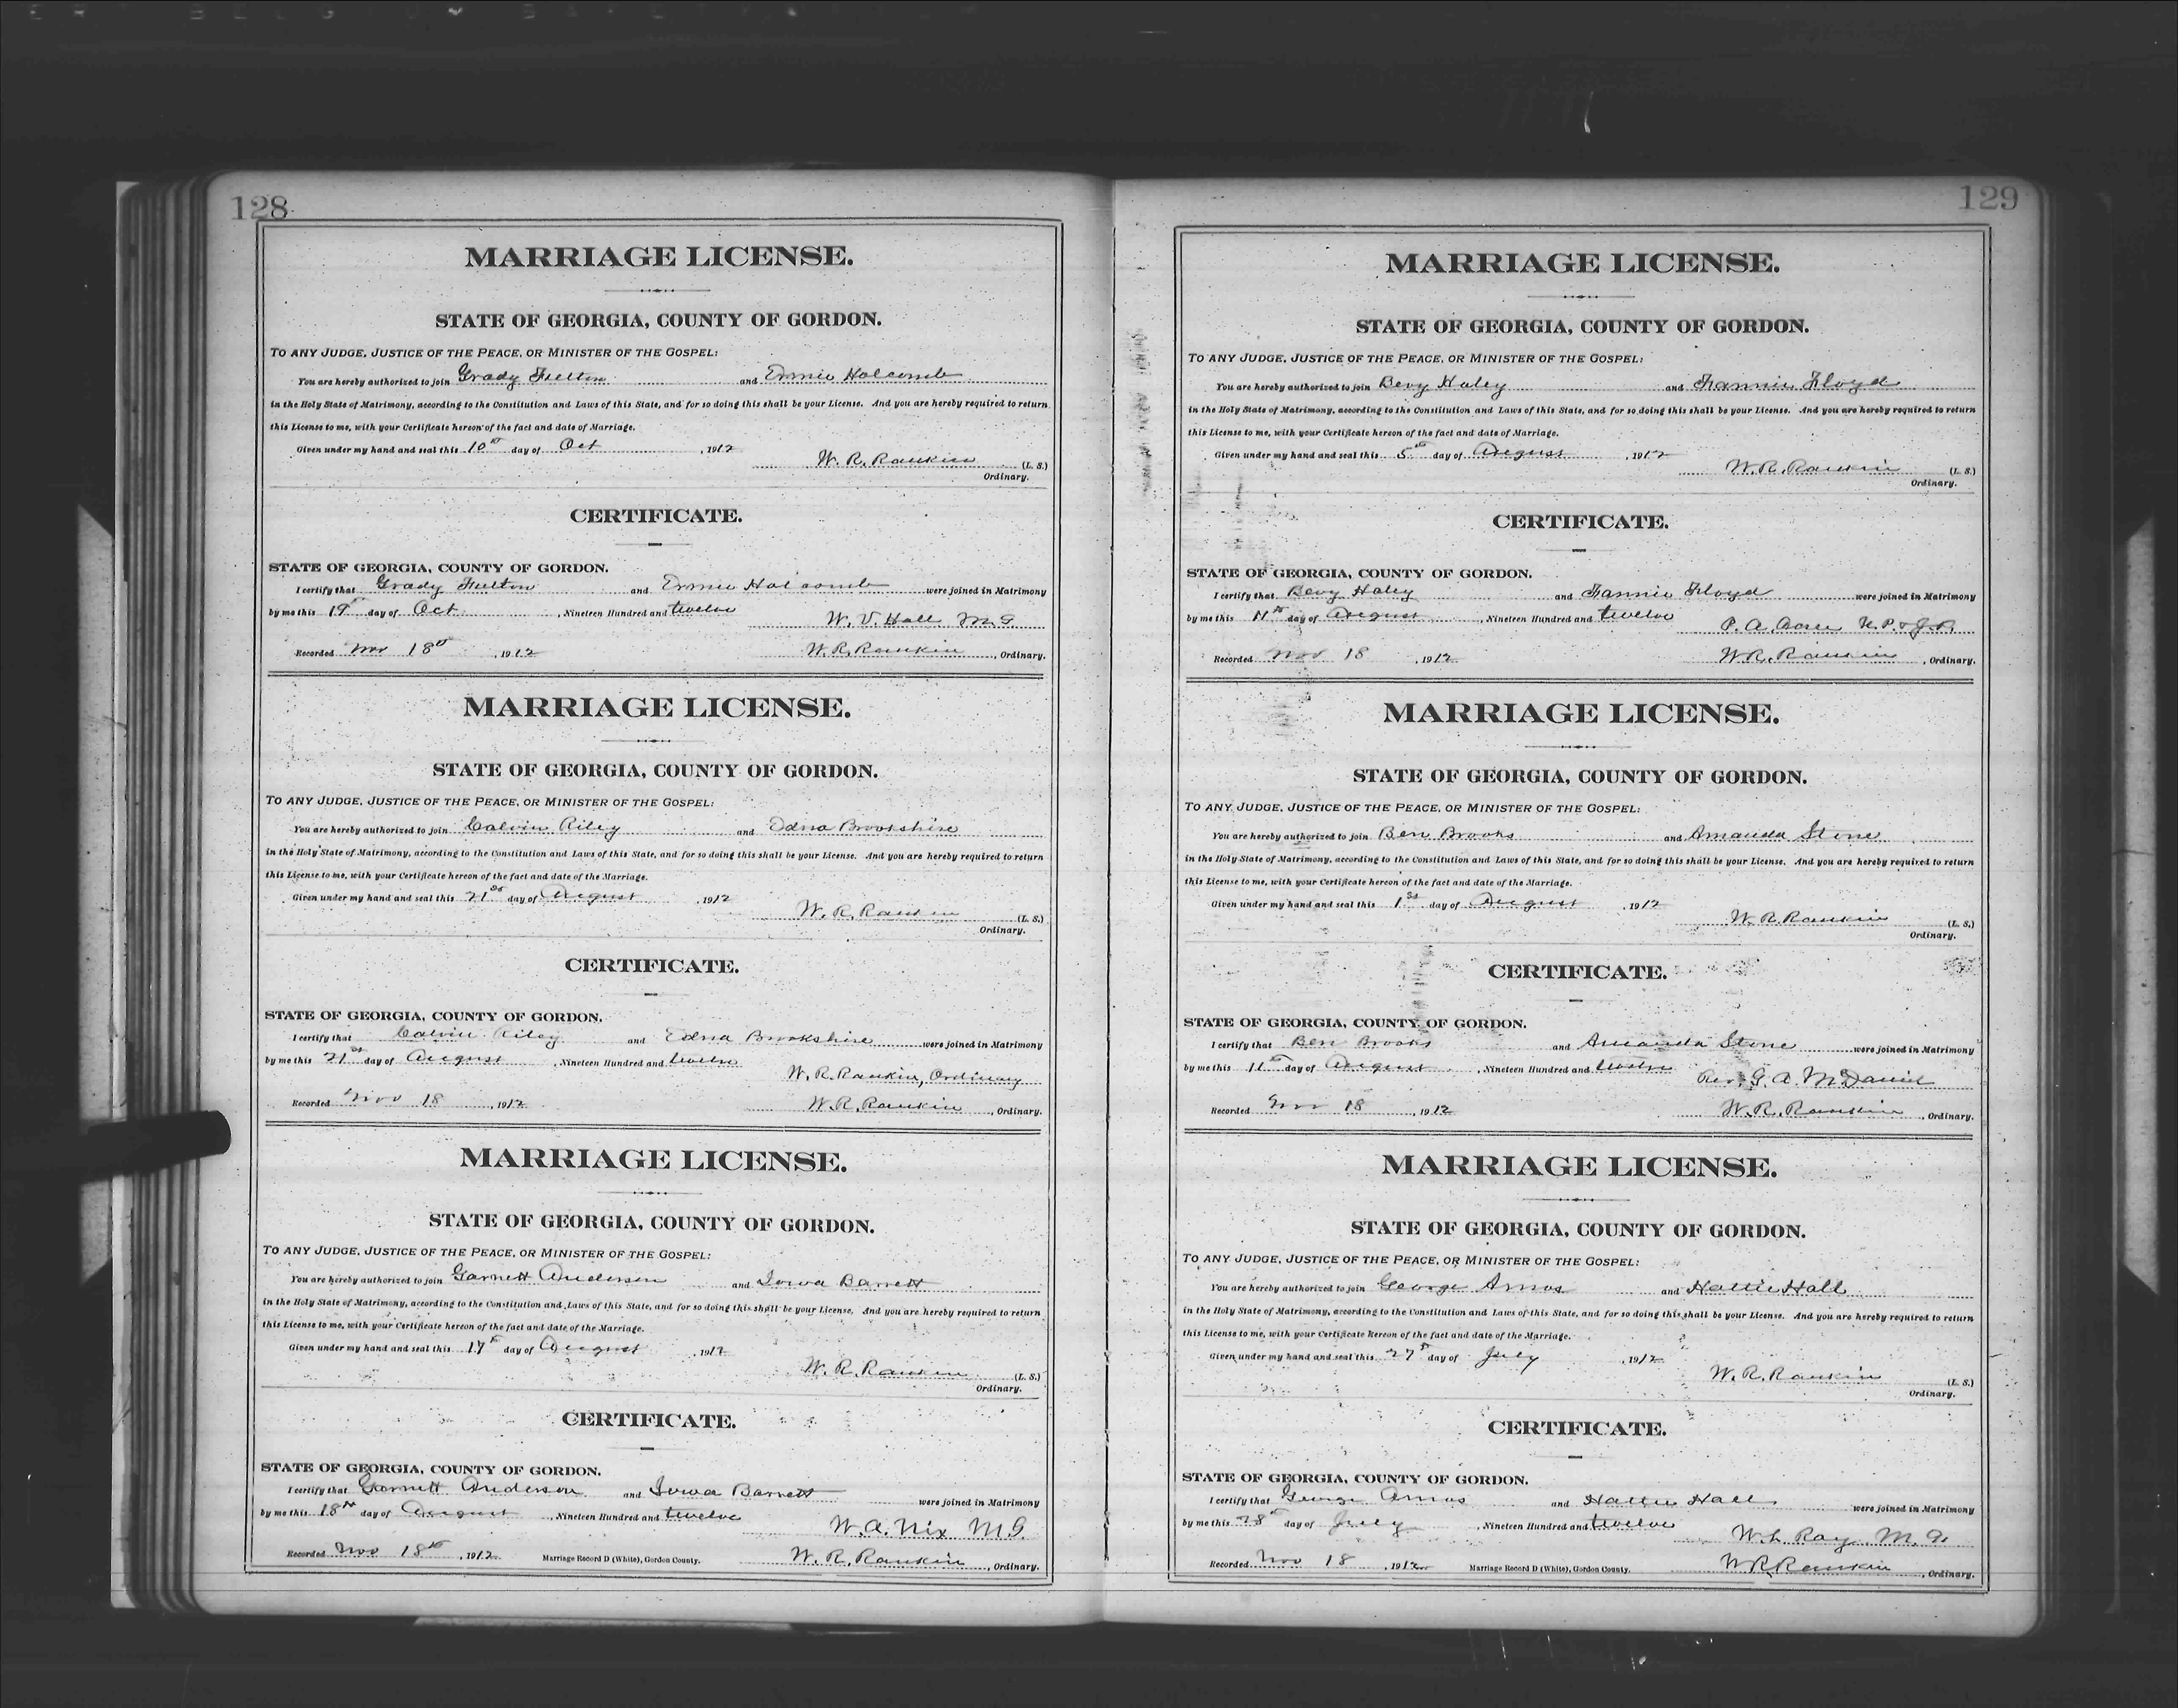 128
MARRIAGE LICENSE.
STATE OF GEORGIA, COUNTY OF GORDON.
TO ANY JUDGE, JUSTICE OF THE PEACE, OR MINISTER OF THE GOSPEL:
You are hereby authorized to join Grady Fulton and Ermie Holcomb
in the Holy State of Matrimony, according to the Constitution and Laws of this State, and for so doing this shall be your License. And you are hereby required to return
this License to me, with your Certificate hereon of the fact and date of Marriage.
Given under my hand and seal this 10th day of Oct , 1912
W. R. Rankin (L. S.)
Ordinary.
CERTIFICATE.
STATE OF GEORGIA, COUNTY OF GORDON.
I certify that Grady Fulton and Ermie Holcomb were joined in Matrimony
by me this 19th day of Oct , Nineteen Hundred and twelve
W. V. Hall M G
Recorded Nov 18th , 1912 W. R. Rankin , Ordinary.
MARRIAGE LICENSE.
STATE OF GEORGIA, COUNTY OF GORDON.
TO ANY JUDGE, JUSTICE OF THE PEACE, OR MINISTER OF THE GOSPEL:
You are hereby authorized to join Calvin Riley and Edna Brookshire
in the Holy State of Matrimony, according to the Constitution and Laws of this State, and for so doing this shall be your License. And you are hereby required to return
this License to me, with your Certificate hereon of the fact and date of the Marriage.
Given under my hand and seal this 21st day of August , 1912
W. R. Rankin (L. S.)
Ordinary.
CERTIFICATE.
STATE OF GEORGIA, COUNTY OF GORDON.
I certify that Calvin Riley and Edna Brookshire were joined in Matrimony
by me this 21st day of August , Nineteen Hundred and twelve
W. R. Rankin, Ordinary
Recorded Nov 18 , 1912 W. R. Rankin , Ordinary.
MARRIAGE LICENSE.
STATE OF GEORGIA, COUNTY OF GORDON.
TO ANY JUDGE, JUSTICE OF THE PEACE, OR MINISTER OF THE GOSPEL:
You are hereby authorized to join Garnett Anderson and Iowa Barrett
in the Holy State of Matrimony, according to the Constitution and Laws of this State, and for so doing this shall be your License. And you are hereby required to return
this License to me, with your Certificate hereon of the fact and date of the Marriage.
Given under my hand and seal this 17th day of August , 1912
W. R. Rankin (L. S.)
Ordinary.
CERTIFICATE.
STATE OF GEORGIA, COUNTY OF GORDON.
I certify that Garnett Anderson and Iowa Barrett were joined in Matrimony
by me this 18th day of August , Nineteen Hundred and twelve
W. A. Nix M.G.
Recorded Nov 18th , 1912 Marriage Record D (White), Gordon County. W. R. Rankin , Ordinary.
129
MARRIAGE LICENSE.
STATE OF GEORGIA, COUNTY OF GORDON.
TO ANY JUDGE, JUSTICE OF THE PEACE, OR MINISTER OF THE GOSPEL:
You are hereby authorized to join Bevy Haley and Fannie Floyd
in the Holy State of Matrimony, according to the Constitution and Laws of this State, and for so doing this shall be your License. And you are hereby required to return
this License to me, with your Certificate hereon of the fact and date of Marriage.
Given under my hand and seal this 5th day of August , 1912
W. R. Rankin (L. S.)
Ordinary.
CERTIFICATE.
STATE OF GEORGIA, COUNTY OF GORDON.
I certify that Bevy Haley and Fannie Floyd were joined in Matrimony
by me this 11th day of August , Nineteen Hundred and twelve
P. A. Acree N. P. & J. P.
Recorded Nov 18 , 1912 W. R. Rankin , Ordinary.
MARRIAGE LICENSE.
STATE OF GEORGIA, COUNTY OF GORDON.
TO ANY JUDGE, JUSTICE OF THE PEACE, OR MINISTER OF THE GOSPEL:
You are hereby authorized to join Ben Brooks and Amanda Stone
in the Holy State of Matrimony, according to the Constitution and Laws of this State, and for so doing this shall be your License. And you are hereby required to return
this License to me, with your Certificate hereon of the fact and date of the Marriage.
Given under my hand and seal this 1st day of August , 1912
W. R. Rankin (L. S.)
Ordinary.
CERTIFICATE.
STATE OF GEORGIA, COUNTY OF GORDON.
I certify that Ben Brooks and Amanda Stone were joined in Matrimony
by me this 11th day of August , Nineteen Hundred and twelve
Rev. G. A. McDaniel
Recorded Nov 18 , 1912 W. R. Rankin , Ordinary.
MARRIAGE LICENSE.
STATE OF GEORGIA, COUNTY OF GORDON.
TO ANY JUDGE, JUSTICE OF THE PEACE, OR MINISTER OF THE GOSPEL:
You are hereby authorized to join George Amos and Hattie Hall
in the Holy State of Matrimony, according to the Constitution and Laws of this State, and for so doing this shall be your License. And you are hereby required to return
this License to me, with your Certificate hereon of the fact and date of the Marriage.
Given under my hand and seal this 27th day of July , 1912
W. R. Rankin (L. S.)
Ordinary.
CERTIFICATE.
STATE OF GEORGIA, COUNTY OF GORDON.
I certify that George Amos and Hattie Hall were joined in Matrimony
by me this 28th day of July , Nineteen Hundred and twelve
W. L. Ray M. G.
Recorded Nov 18 , 1912 Marriage Record D (White), Gordon County. W. R. Rankin , Ordinary.